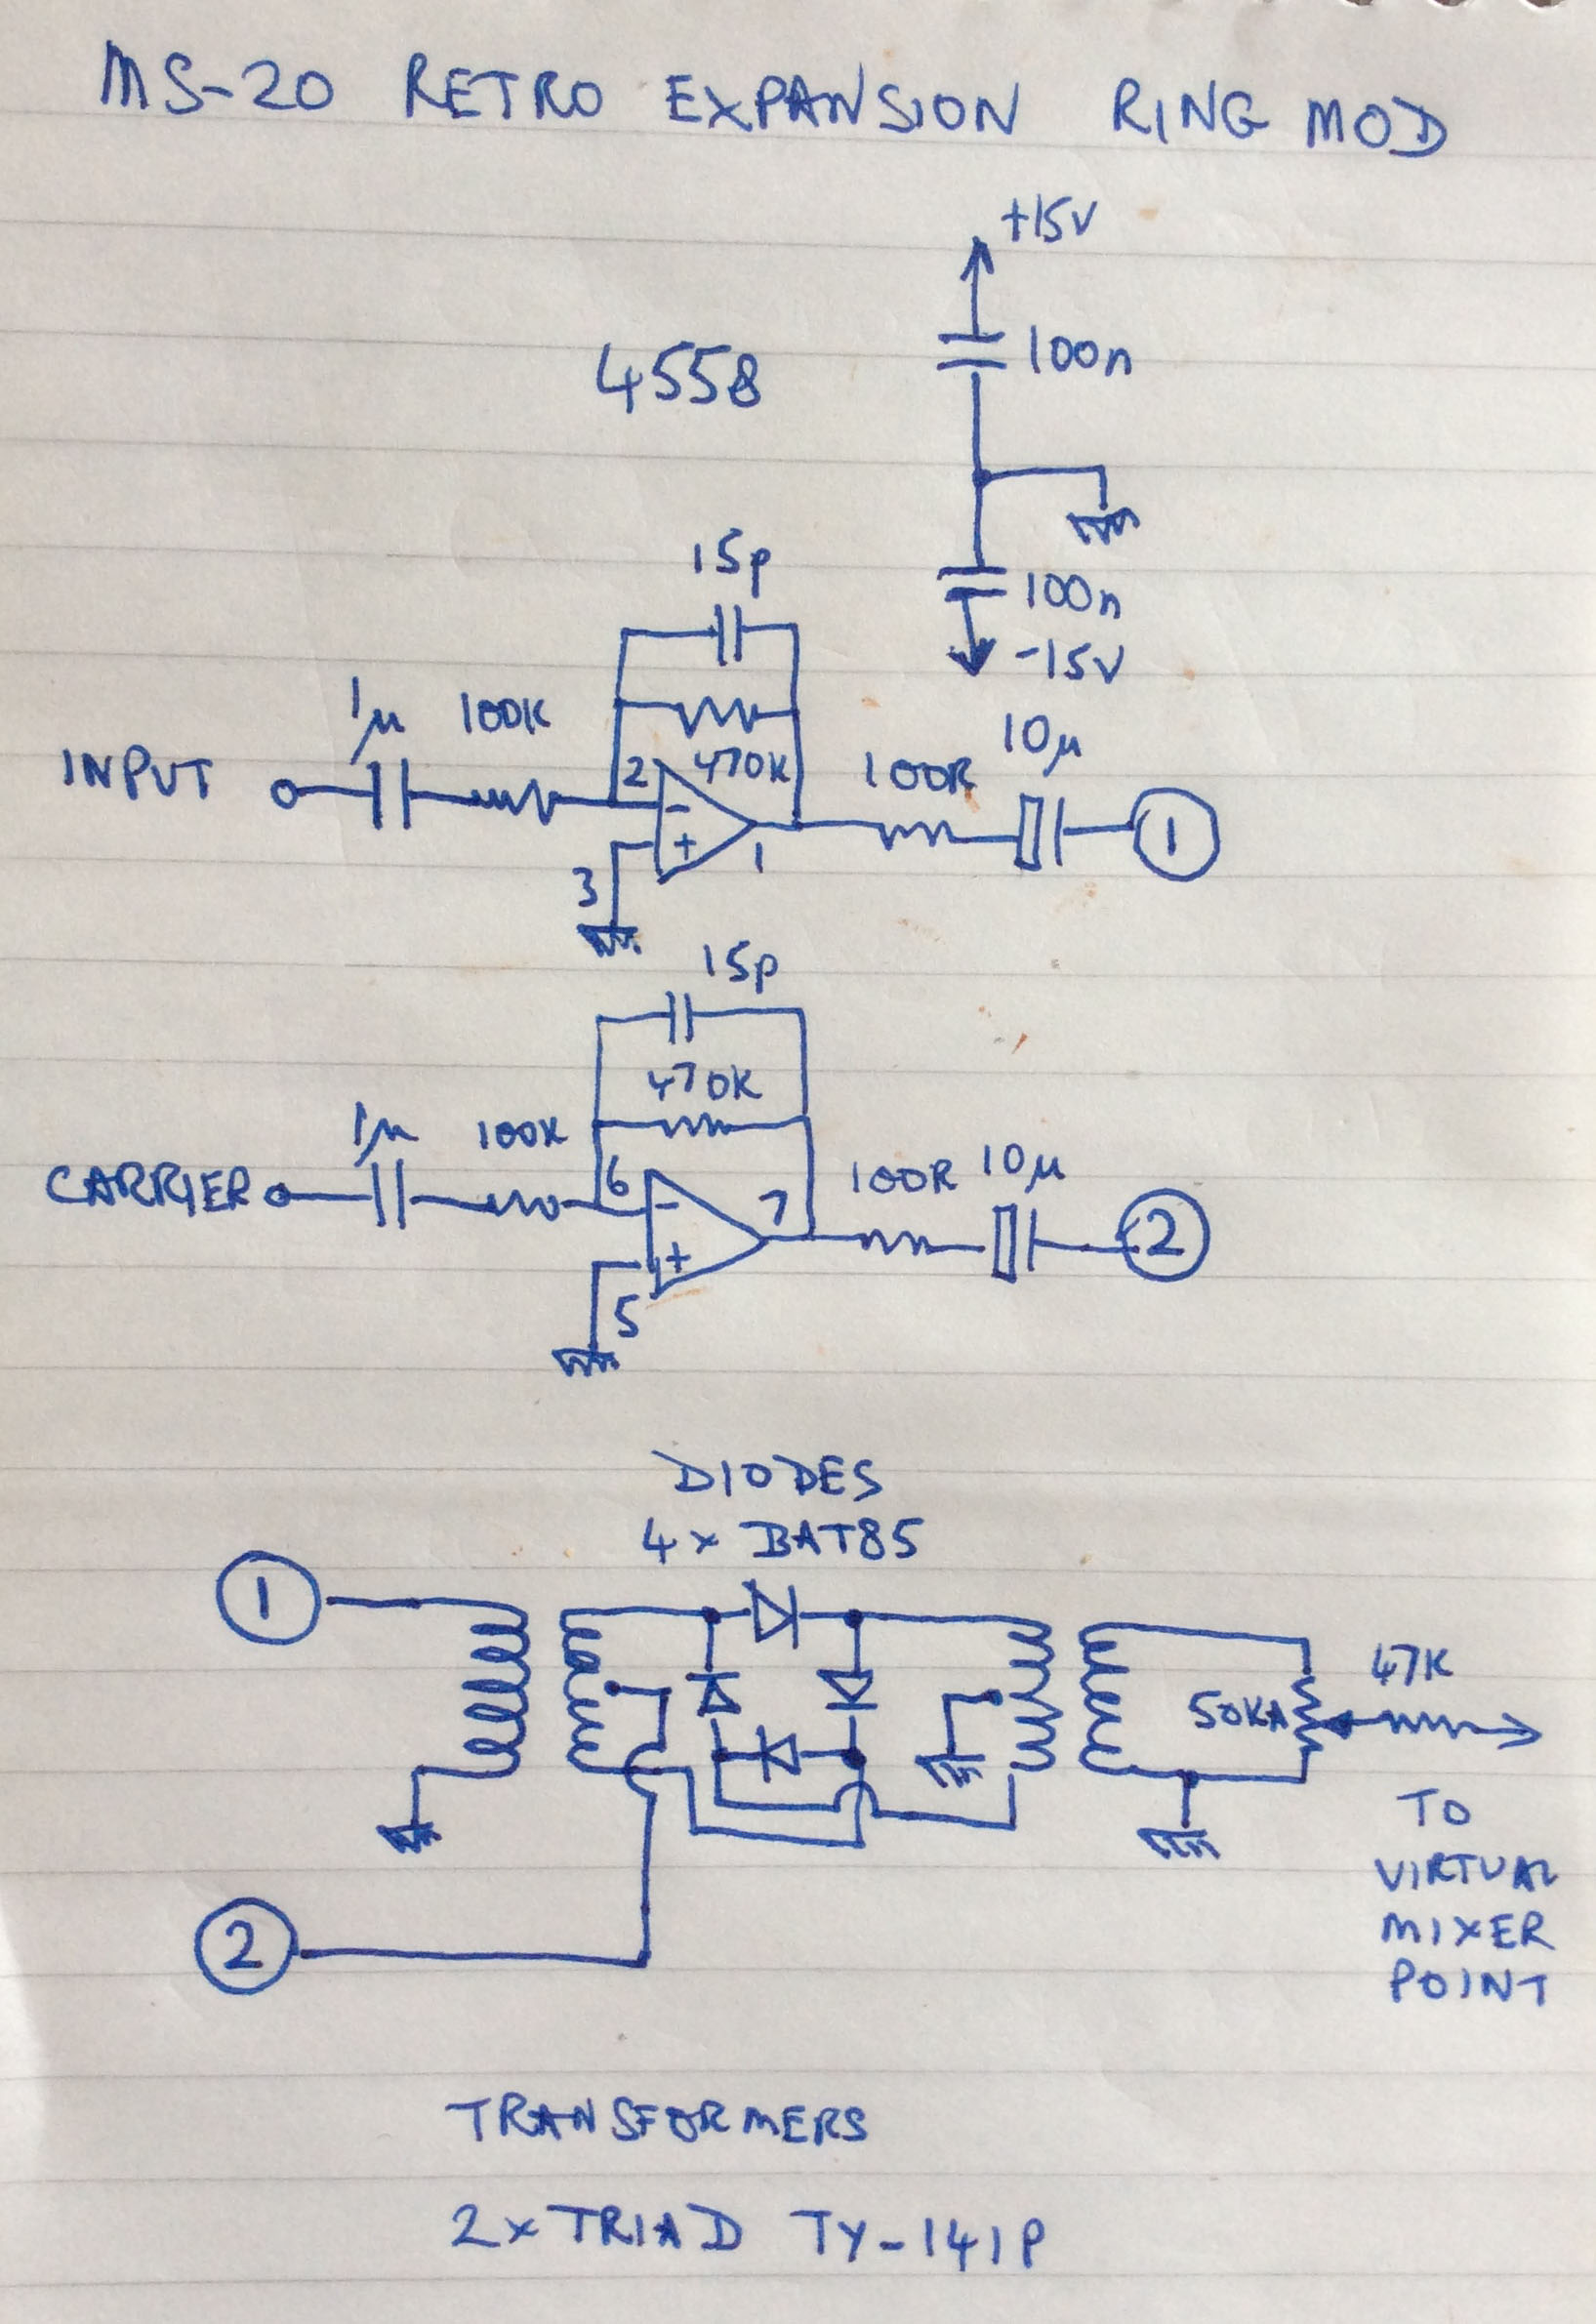 MS-20 RETRO EXPANSION RING MOD
+15V
4558
100n
100n
-15V
15p
1μ 100K
470K
100R
10μ
INPUT
2
-
+
3
1
1
15p
470K
1μ 100K
100R 10μ
CARRIER
6
-
7
+
5
2
DIODES
4x BAT85
1
47K
50KA
TO
VIRTUAL
MIXER
POINT
2
TRANSFORMERS
2x TRIAD TY-141P